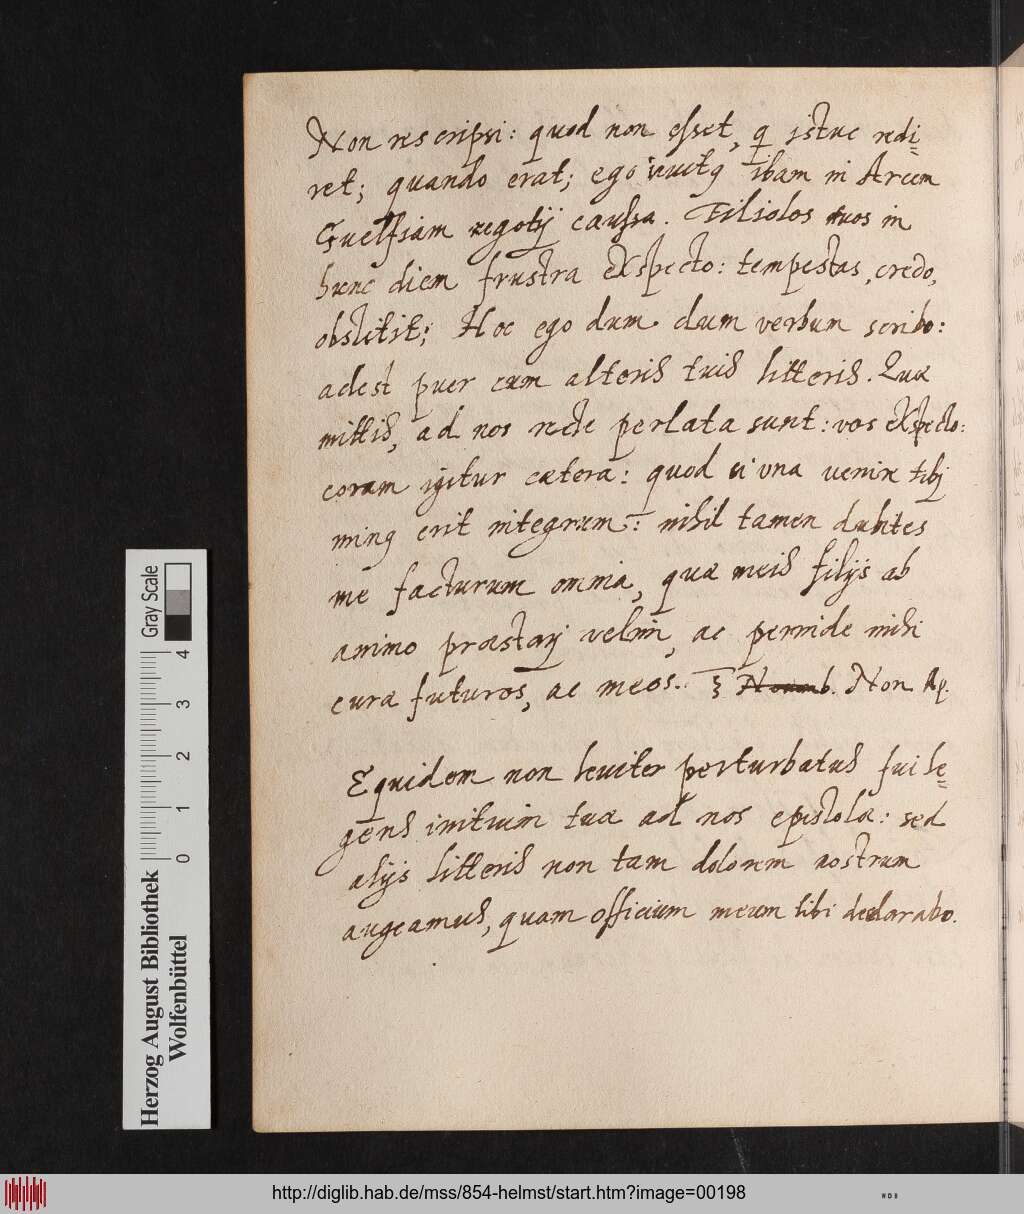 Non rescripsi: quod non esset, q istuc redi=
ret; quando erat; ego invitq ibam in Arcem
Guelfiam negotij caussa. Filiolos tuos in
hunc diem frustra exspecto: tempestas, credo,
obstitit; Hoc ego dum dum verbum scribo:
adest puer cum alteris tuis litteris. Quæ
mittis, ad nos recte perlata sunt: vos exspecto:
coram igitur cætera: quod si una venire tibj
minq erit integrum: nihil tamen dubites
me facturum omnia, quæ meis filijs ab
animo præstarj velim, ac perinde mihi
curæ futuros, ac meos. Novemb. Non Ap.
Equidem non leviter perturbatus fui le=
gens initium tuæ ad nos epistola: sed
alijs litteris non tam dolorem nostrum
augeamus, quam officium meum tibi declarabo.
Herzog August Bibliothek
Wolfenbüttel
Gray Scale
0 1 2 3 4
http://diglib.hab.de/mss/854-helmst/start.htm?image=00198
WDB